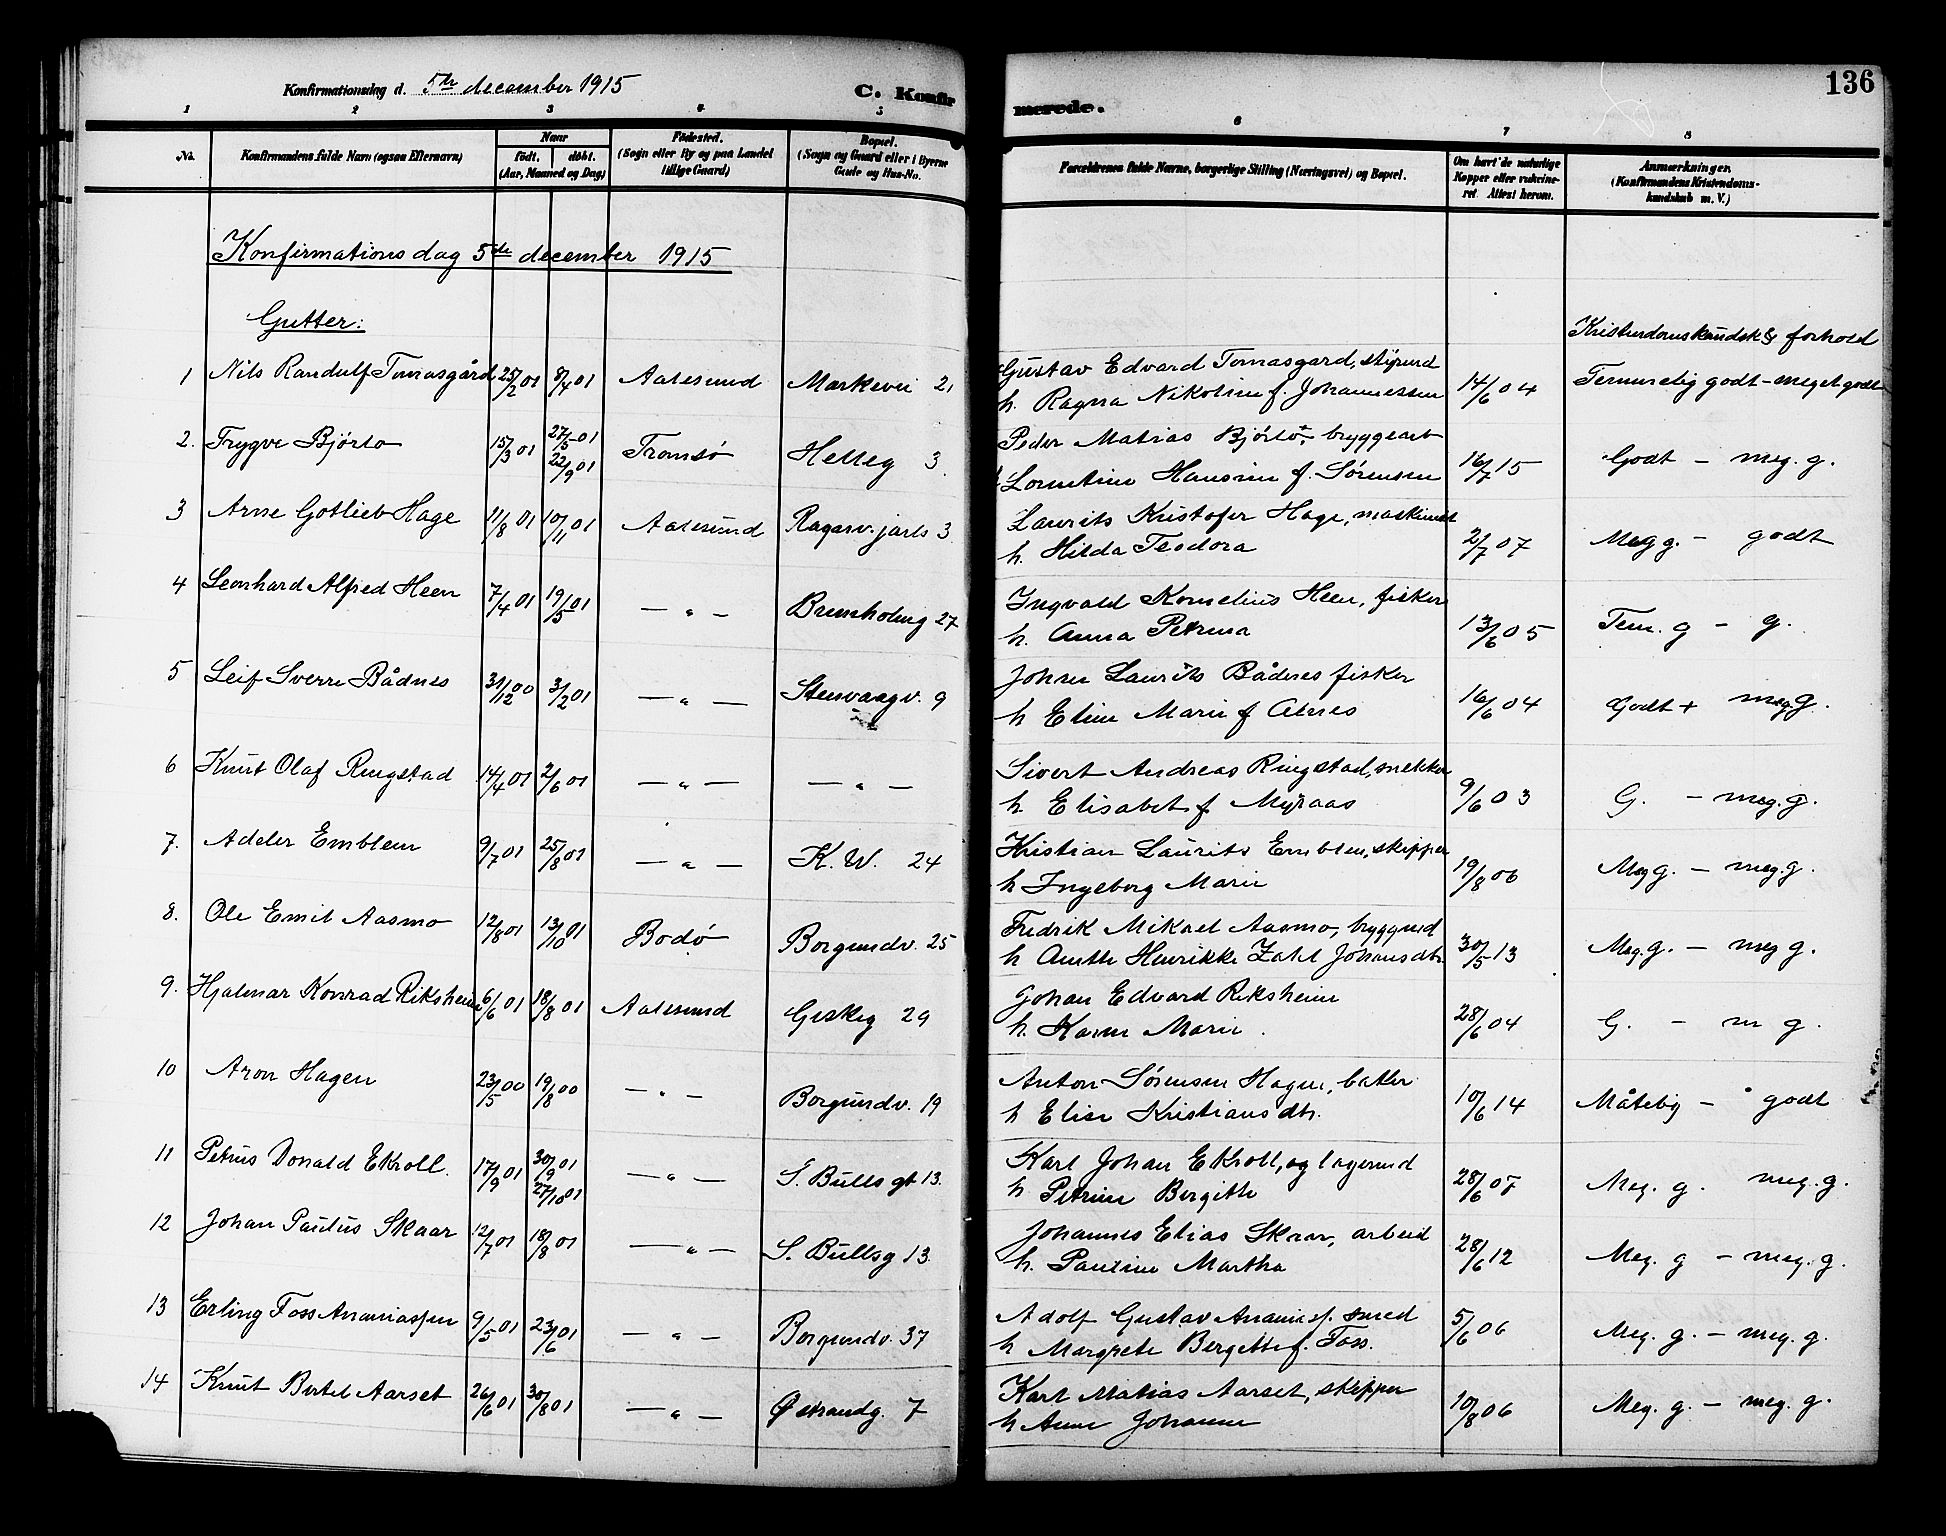 Konfirmationsdag d. 5te december 1915
C. Konfirmerede.
136
1 2 3 4 5 6 7 8
No. Konfirmandens fulde Navn (ogsaa Efternavn) Naar født. døbt. (Aar, Maaned og Dag) Fødested. (Sogn eller By og paa Landet tillige Gaard) Bopæl. (Sogn og Gaard eller i Byerne Gade og Hus-No. Forældrenes fulde Navne, borgerlige Stilling (Næringsvei) og Bopæl. Om havt de naturlige Kopper eller vaccineret. Attest herom. Anmærkninger. (Konfirmandens Kristendomskundskab m. V.)
Konfirmationsdag 5te december 1915
Gutter:
Kristendomskundsk & forhold
1 Nils Randulf Tomasgård 25/2 01 8/4 01 Aalesund Markevei 21 Gustav Edvard Tomasgard, styrmd 14/6 04 Temmelig godt - meget godt
h. Ragna Nikoline f. Johannessen
2. Trygve Bjørlo 15/3 01 27/5 01 22/9 01 Tromsø Helleg 3. Peder Matias Bjørlo, bryggearb 16/7 15 Godt - meg. g.
Lorentine Hansine f. Sørensen
3 Arne Gotlieb Hage 11/8 01 10/11 01 Aalesund Ragnv. jarls 3 Laurits Kristofer Hage, maskinist 2/7 07 Meg g. - godt
h. Hilda Teodora
4 Leonhard Alfred Heen 7/4 01 19/5 01 — " — Brunholmg 27 Ingvald Kornelius Heen, fisker 13/6 05 Tem. g - g.
h. Anna Petrina
5 Leif Sverre Bådnes 31/12 00 3/2 01 — " — Stenvaagv. 9 Johan Laurits Bådnes fisker 16/6 04 Godt + meg g.
h Eline Marie f Alnes
6 Knut Olaf Ringstad 14/4 01 2/6 01 — " — — " — Sivert Andreas Ringstad, snekker 9/6 03 G. - meg. g.
h. Elisabet f Myraas
7. Adeler Emblem 9/7 01 25/8 01 — " — K. W. 24 Kristian Laurits Emblem, skipper 19/8 06 Meg g. - meg. g.
h Ingeborg Marie
8. Ole Emil Aasmo 12/8 01 13/10 01 Bodø Borgundv. 25 Fredrik Mikael Aasmo, byggmd 30/5 13 Meg. g. - meg g.
h Anette Henrikke Zahl Johansdtr.
9. Hjalmar Konrad Riksheim 6/6 01 18/8 01 Aalesund Giskeg 29 Johan Edvard Riksheim 28/6 04 G. - m g.
h. Karen Marie.
10 Aron Hagen 23/5 00 19/8 00 — " — Borgundv. 19 Anton Sørensen Hagen, bakler 10/6 14 Måtelig - godt
h Elise Kristiansdtr.
11 Petrus Donald Ekroll. 17/9 01 30/9 01 27/10 01 — " — S. Bulls gt 13. Karl Johan Ekroll, og lagermd 28/6 07 Meg. g. meg. g.
h Petrine Bergithe
12 Johan Paulus Skaar 12/7 01 18/8 01 — " — S. Bullsg 13. Johannes Elias Skaar, arbeid 28/6 12 Meg. g - meg. g.
h. Pauline Martha
13 Erling Foss Ananiassen 9/5 01 23/6 01 — " — Borgundv. 37 Adolf Gustav Ananiasf. smed 5/6 06 Meg. g. - meg. g.
h Margrete Bergette f. Foss.
14 Knut Bertel Aarset 26/6 01 30/8 01 — " — Østrandg. 7 Karl Matias Aarset, skipper 10/8 06 Meg. g. - meg. g.
h Anne Johanne